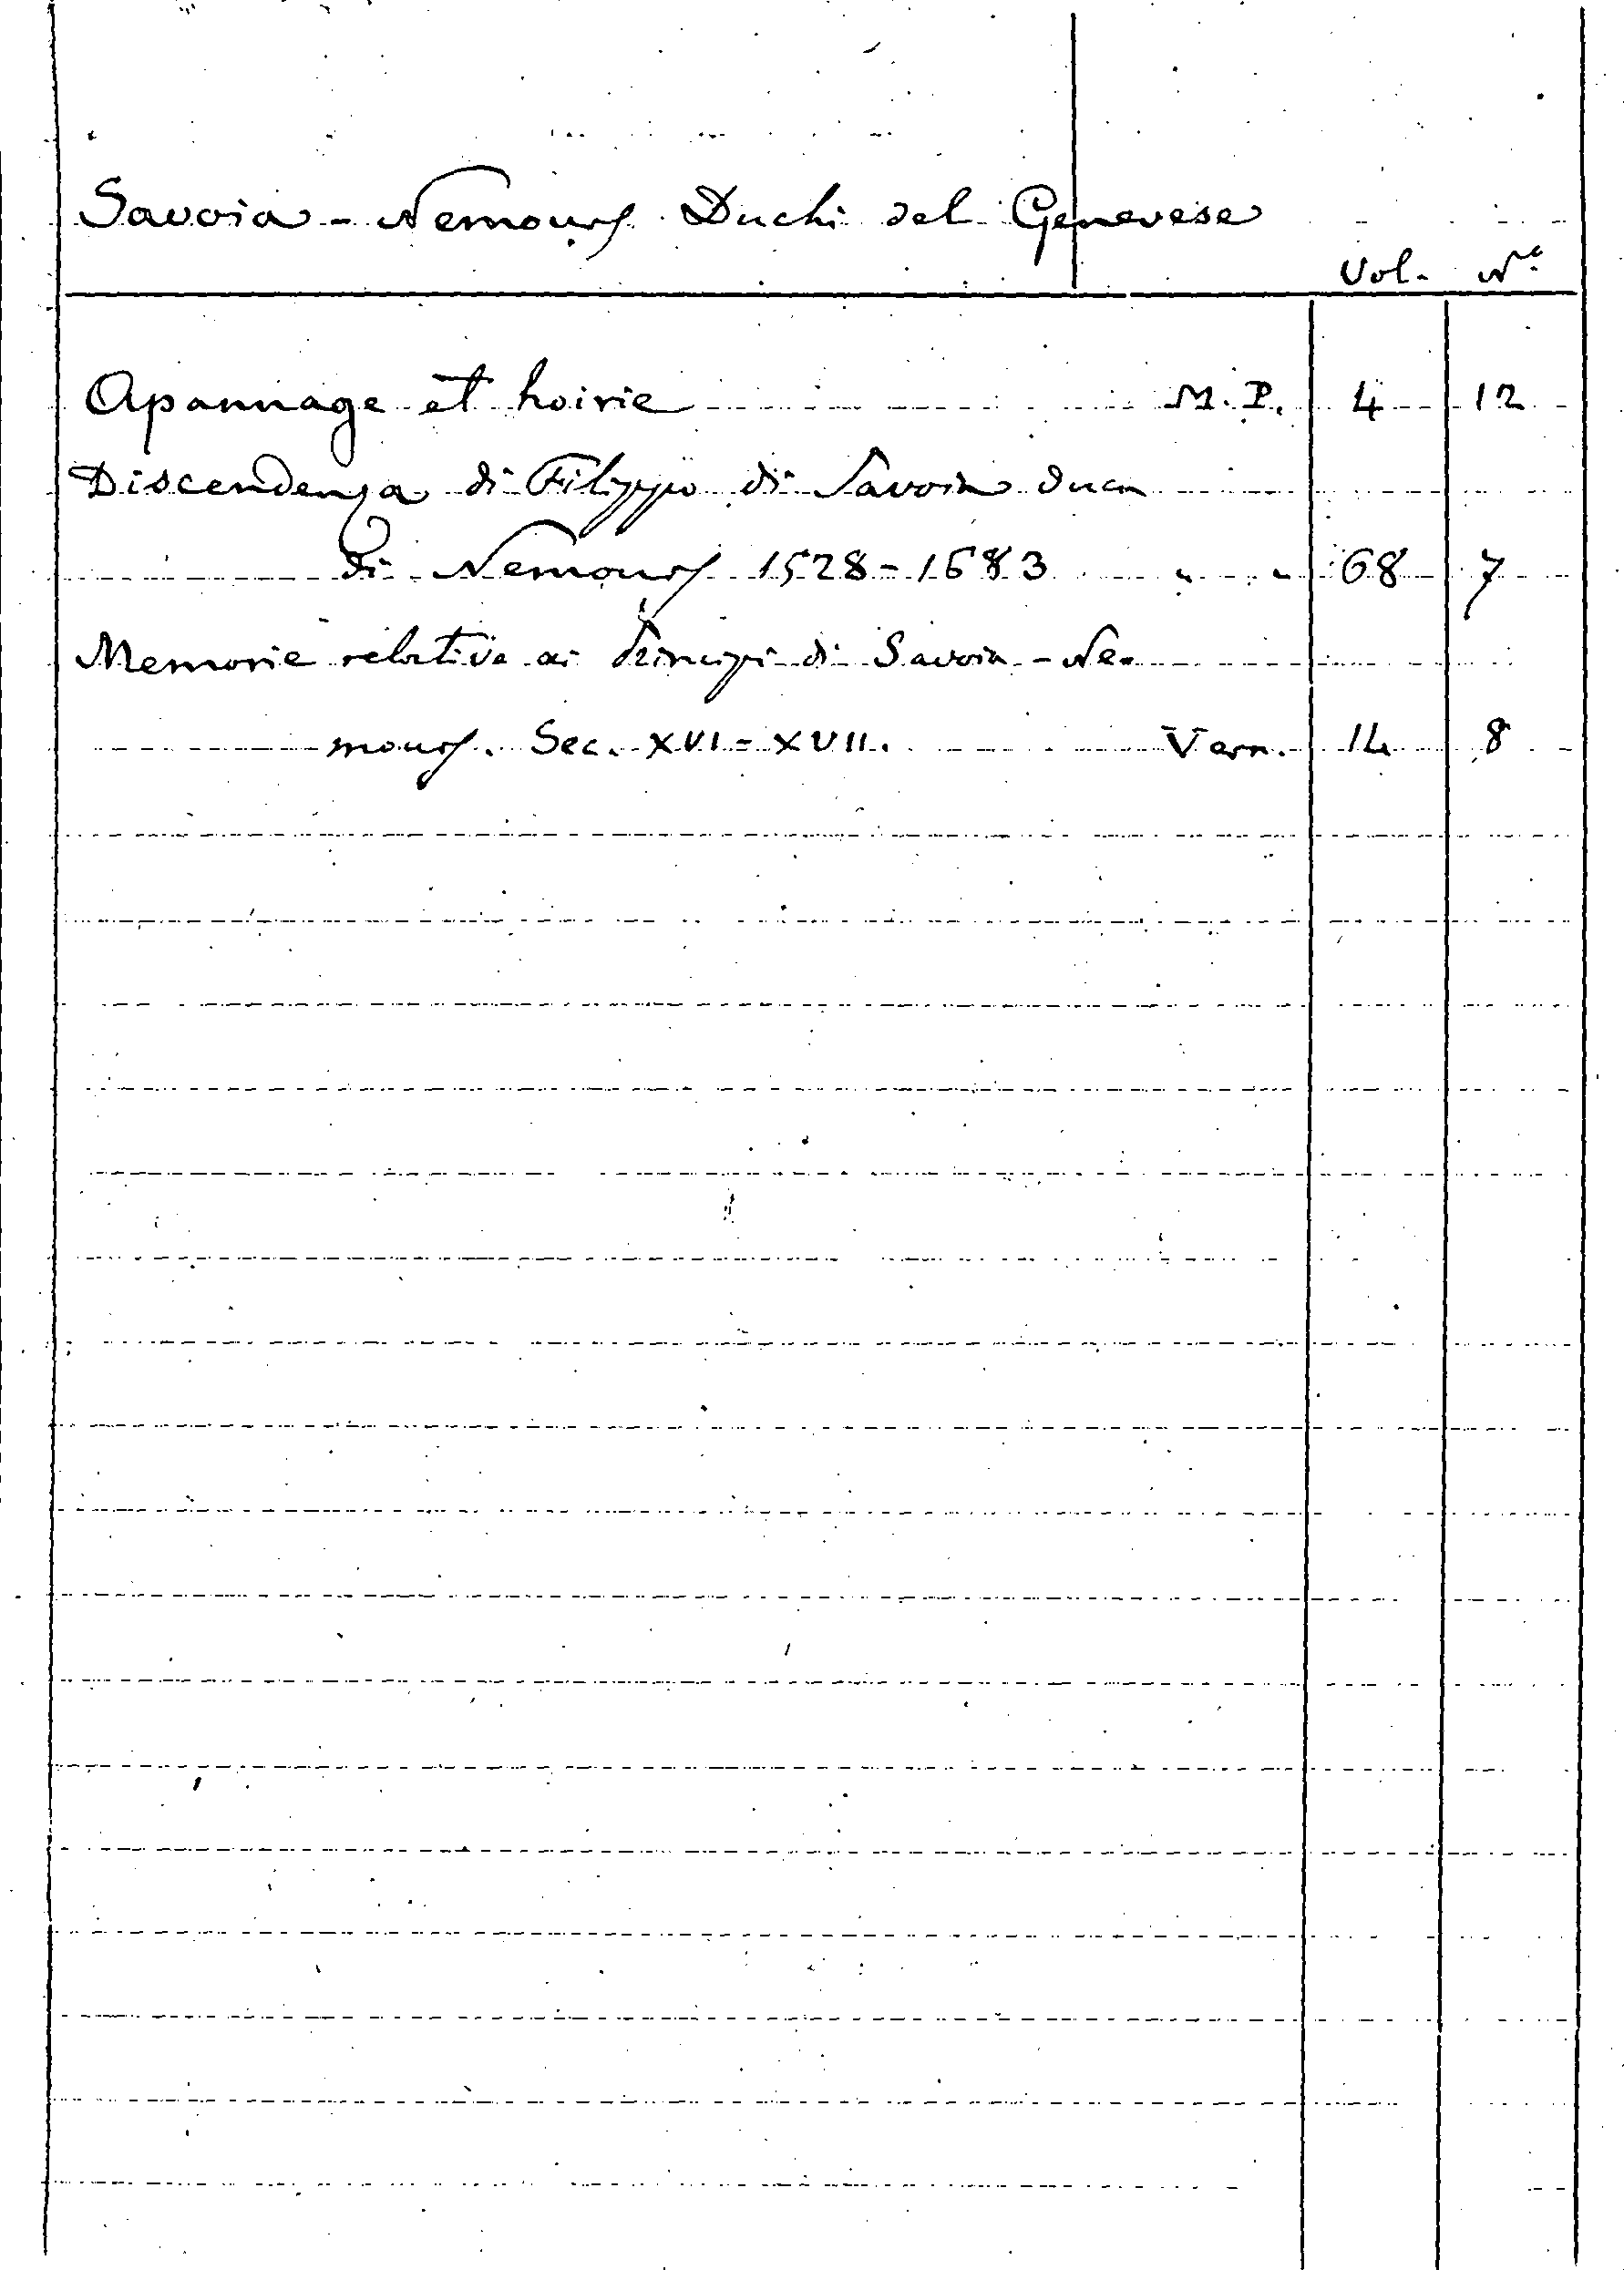 Savoia - Nemours Duchi del Genevese
Vol. Nº
Apannage et hoirie M. P. 4 12
Discendenza di Filippo di Savoia duca
di Nemours 1528-1683 " " 68 7
Memorie relative ai Principi di Savoia - Ne-
mours. Sec. XVI - XVII. Vern. 14 8